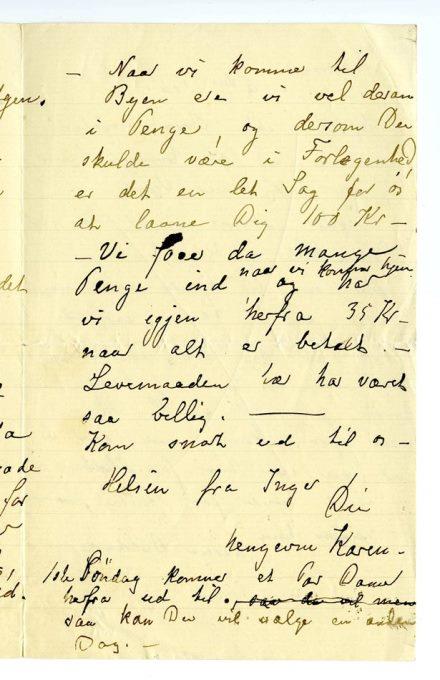 — Naar vi komme til
Byen ere vi vel deran
i Penge, og dersom Du
skulde være i Forlegenhed
er det en let Sag for os
at laane Dig 100 Kr —
— Vi faae da mange
Penge ind naar vi komme hjem
og har
vi igjen herfra 35 Kr —
naar alt er betalt. —
Levemaaden her har været
saa billig. —
Kom snart ud til os —
Hilsen fra Inger
Din
hengivne Karen.
Söndag kommer et Par Damer
herfra ud til.
saa kan Du vel vælge en anden
Dag. —